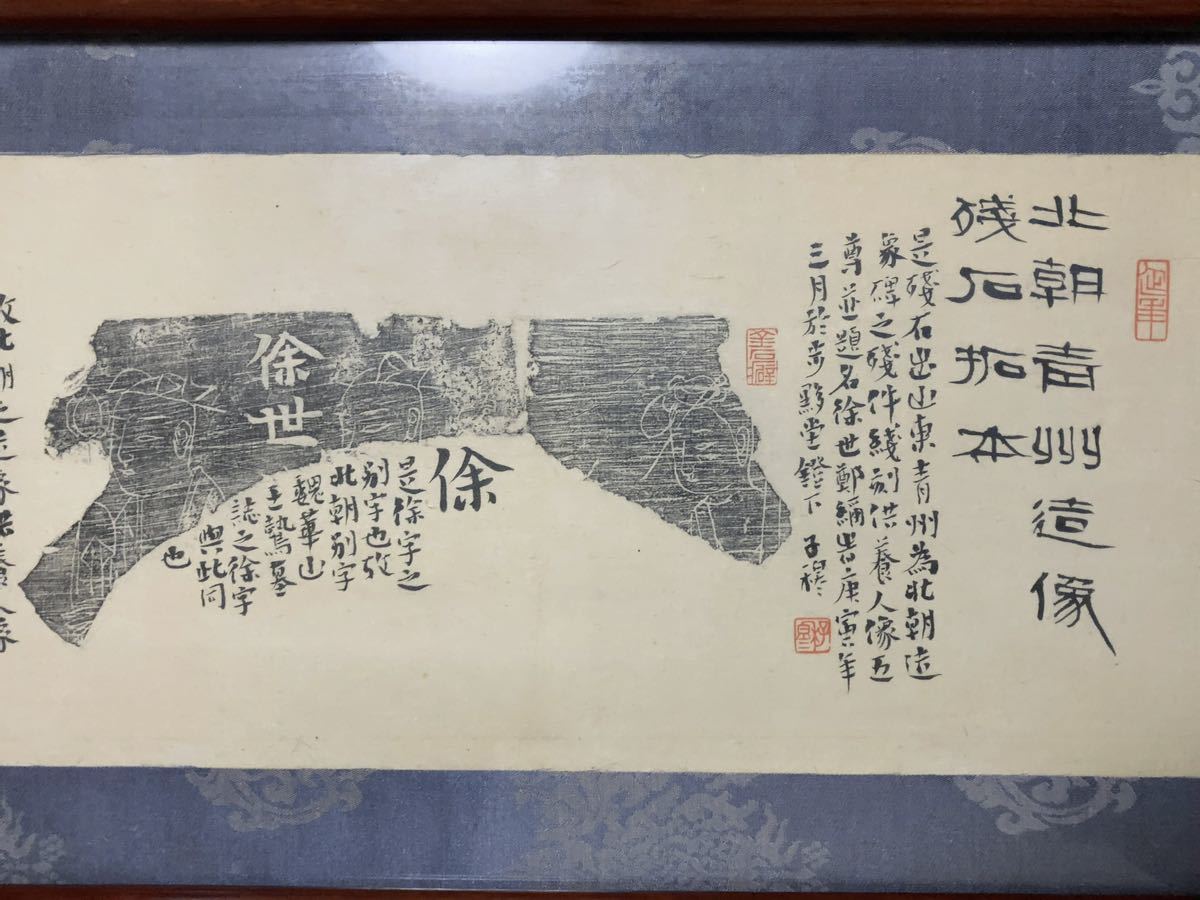 北朝青州造像
殘石拓本
是殘石出山東青州為北朝造
象碑之殘件綫刻供養人像五
尊並題名徐世鄭緬時庚寅年
三月於步黟堂鐙下 子穆
金石癖
徐世
徐
是徐字之
别字也攷
北朝别字
魏華山
王鷙墓
誌之徐字
與此同
也